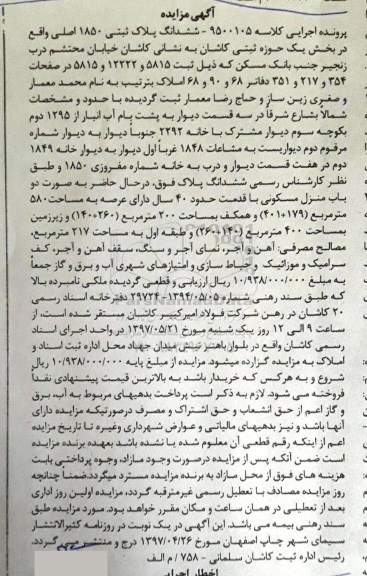 آگهی مزایده
پرونده اجرایی کلاسه ۹۵۰۰۱۰۵ - ششدانگ پلاک ثبتی ۱۸۵۰ اصلی واقع
در بخش یک حوزه ثبتی کاشان به نشانی کاشان خیابان محتشم درب
زنجیر جنب بانک مسکن که ذیل ثبت ۵۸۱۵ و ۱۲۲۲۲ و ۵۸۱۵ در صفحات
۳۵۴ و ۲۱۷ و ۳۵۱ دفاتر ۶۸ و ۹۰ و ۶۸ املاک بترتیب به نام محمد معمار
و صغری زین ساز و حاج رضا معمار ثبت گردیده با حدود و مشخصات
شمالا بشارع شرقاً در سه قسمت دیوار به پشت بام آب انبار از ۱۲۹۵ دوم
بکوچه سوم دیوار مشترک با خانه ۲۲۹۲ جنوباً دیوار به دیوار شماره
مرقوم دوم دیواریست به مشاعات ۱۸۴۸ غرباً اول دیوار به دیوار خانه ۱۸۴۹
دوم در هفت قسمت دیوار و درب به خانه شماره مفروزی ۱۸۵۰ و طبق
نظر کارشناس رسمی ششدانگ پلاک فوق، درحال حاضر به صورت دو
باب منزل مسکونی با قدمت حدود ۴۰ سال دارای عرصه به مساحت ۵۸۰
مترمربع (۱۷۹+۴۰۱) و همکف بمساحت ۲۰۰ مترمربع (۲۶۰+۱۴۰) و زیرزمین
بمساحت ۴۰۰ مترمربع (۱۴۰+۲۶۰) و طبقه اول به مساحت ۲۱۷ مترمربع،
مصالح مصرفی: آهن و آجر، نمای آجر و سنگ، سقف آهن و آجر، کف
سرامیک و موزائیک و حیاط سازی و امتیازهای شهری آب و برق و گاز جمعاً
به مبلغ ۱۰/۹۳۸/۰۰۰/۰۰۰ ریال ارزیابی و قطعی گردیده ملکی نامبرده بالا
که طبق سند رهنی شماره ۲۹۷۲۴-۱۳۹۴/۰۵/۰۵ دفترخانه اسناد رسمی
۲۰ کاشان در رهن شرکت فولاد امیرکبیر کاشان مستقر شده است، از
ساعت ۹ الی ۱۲ روز یک شنبه مورخ ۱۳۹۷/۰۵/۲۱ در واحد اجرای اسناد
رسمی کاشان واقع در بلوار باهنر نبش میدان جهاد محل اداره ثبت اسناد و
املاک به مزایده گزارده میشود. مزایده از مبلغ پایه ۱۰/۹۳۸/۰۰۰/۰۰۰ ریال
شروع و به هرکس که خریدار باشد به بالاترین قیمت پیشنهادی نقداً
فروخته می شود. لازم به ذکر است پرداخت بدهیهای مربوط به آب، برق
و گاز اعم از حق انشعاب و حق اشتراک و مصرف درصورتیکه مزایده دارای
آنها باشد و نیز بدهیهای مالیاتی و عوارض شهرداری وغیره تا تاریخ مزایده
اعم از اینکه رقم قطعی آن معلوم شده یا نشده باشد بعهده برنده مزایده
است ضمن آنکه پس از مزایده درصورت وجود مازاد، وجوه پرداختی بابت
هزینه های فوق از محل مازاد به برنده مزایده مسترد میگردد ضمنا چنانچه
روز مزایده مصادف با تعطیل رسمی غیرمترقبه گردد، مزایده اولین روز اداری
بعد از تعطیلی در همان ساعت و مکان مقرر خواهد بود. مورد مزایده طبق
سند رهنی بیمه می باشد. این آگهی در یک نوبت در روزنامه کثیرالانتشار
سیمای شهر چاپ اصفهان مورخ ۱۳۹۷/۰۴/۲۶ درج و منتشر می گردد.
رئیس اداره ثبت کاشان سلمانی - ۷۵۸ / م الف
اخطار اجرایی